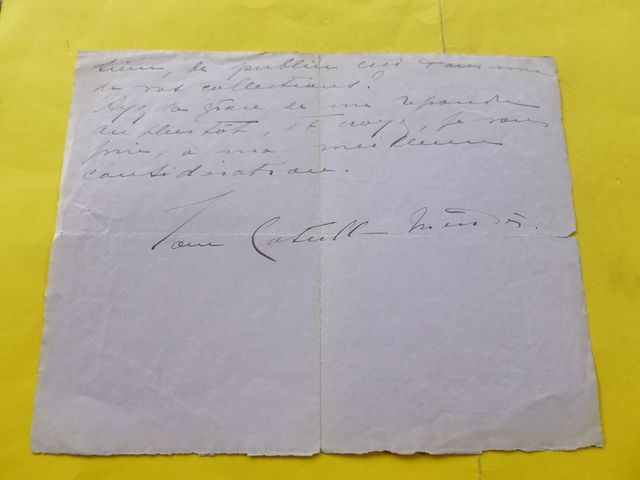 de publier ceci dans une
de vos collections?
Ayez la grâce de me répondre
au plus tôt, et croyez, je vous
prie, à ma meilleure
considération.
Jane Catulle Mendès.